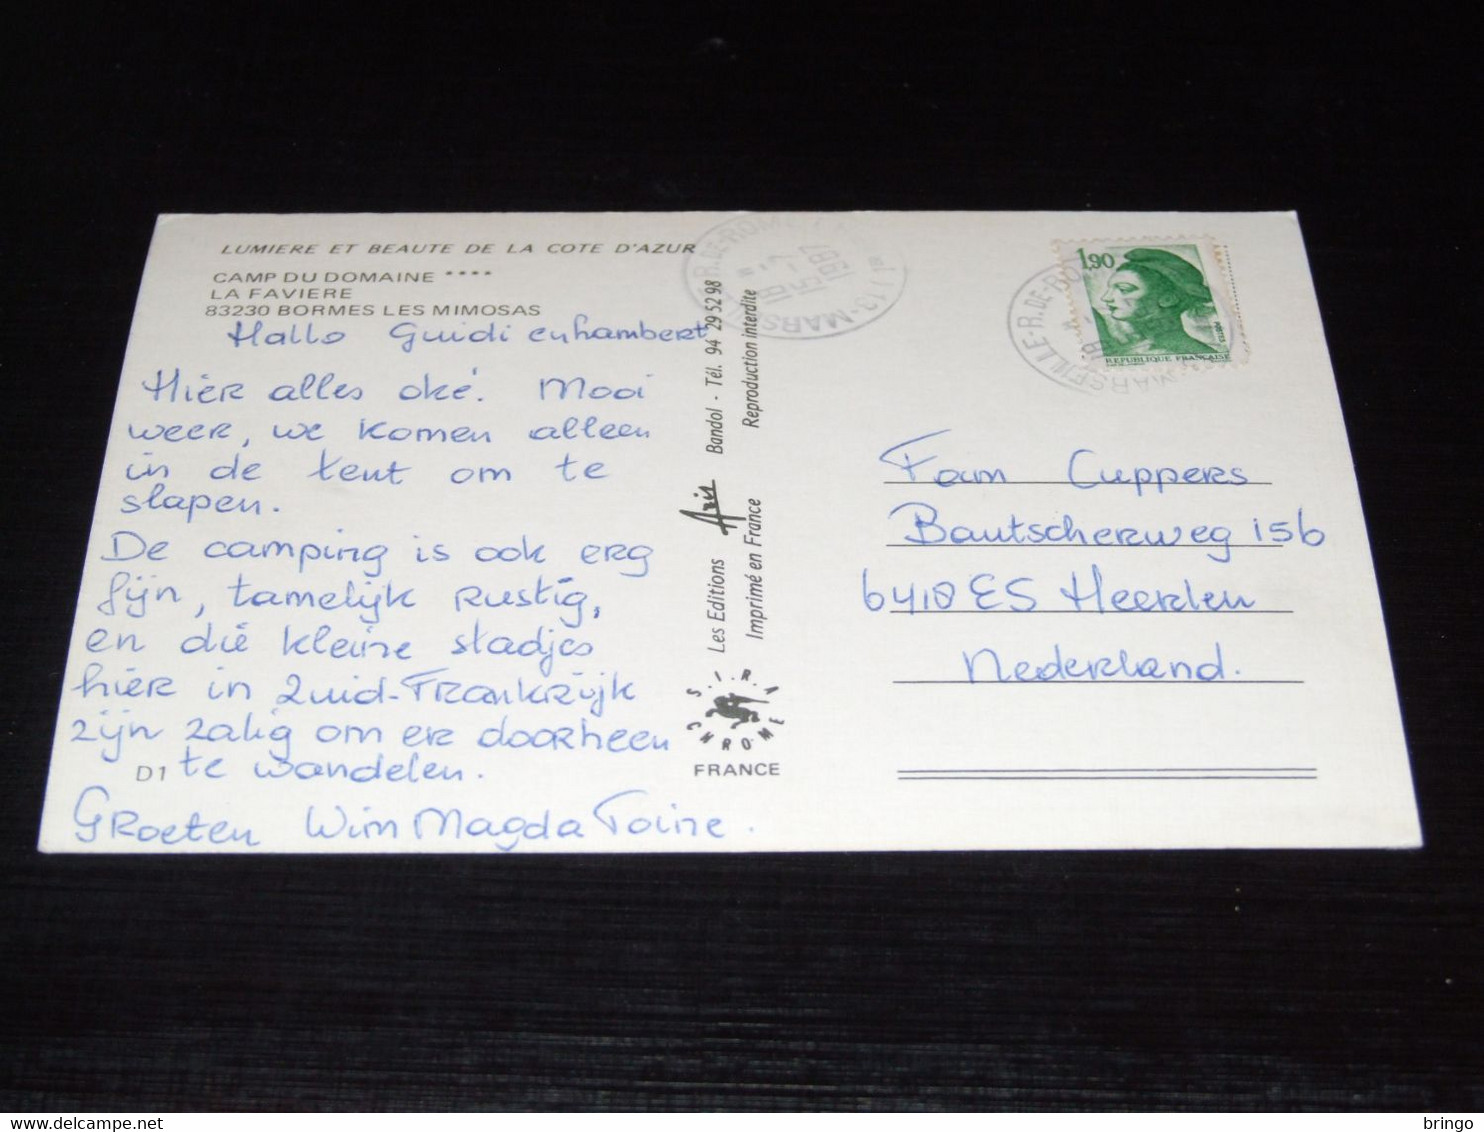 LUMIERE ET BEAUTE DE LA COTE D'AZUR
CAMP DU DOMAINE ****
LA FAVIERE
83230 BORMES LES MIMOSAS
Hallo Guidi en hambert
Hier alles oké. Mooi
weer, we komen alleen
in de tent om te
slapen.
De camping is ook erg
fijn, tamelijk rustig,
en die kleine stadjes
hier in Zuid-Frankrijk
zijn zalig om er doorheen
D1 te wandelen.
Groeten Wim Magda Toine.
Les Editions Aris Bandol - Tél. 94 29 52 98
Imprimé en France Reproduction interdite
S.I.R.A
CHROME
FRANCE
13-MARSEILLE-R.DE-ROME
1987
1,90
REPUBLIQUE FRANÇAISE
13-MARSEILLE-R.DE-ROME
Fam Cuppers
Bautscherweg 15b
6418 ES Heerlen
Nederland.
bringo